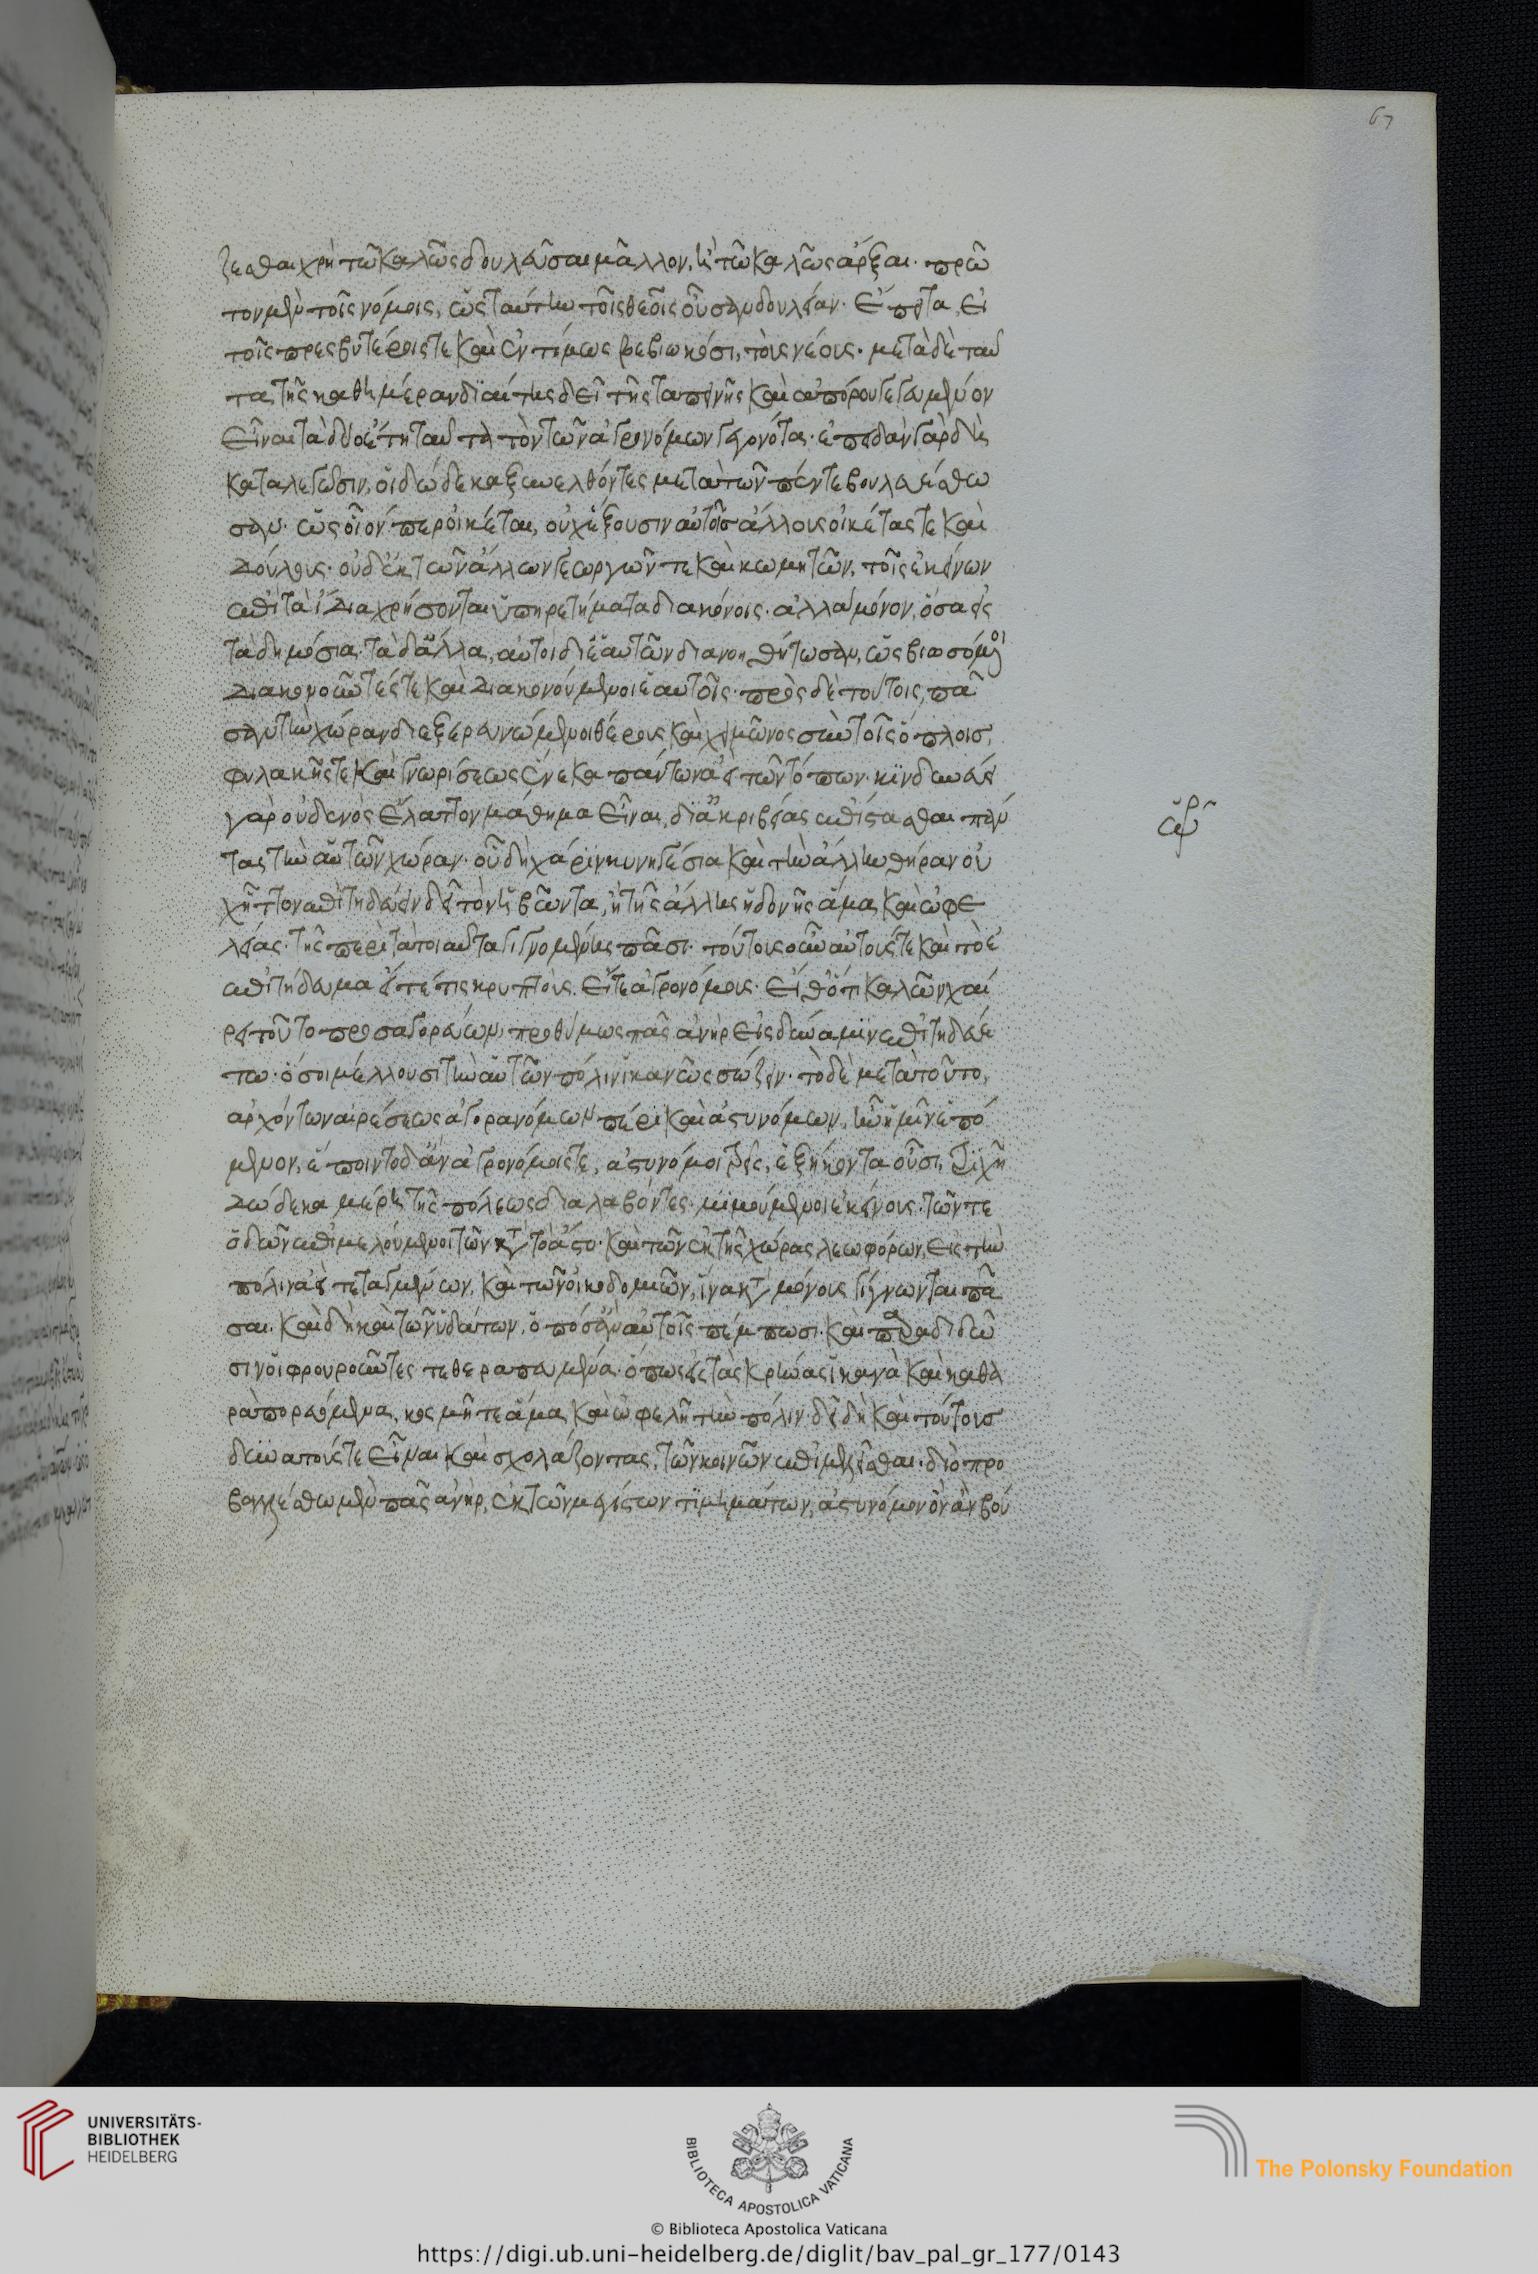 ζεσθαι χρὴ τῶ καλῶς δουλεῦσαι μᾶλλον, ἢ τῶ καλῶς ἄρξαι· πρῶ
τον μὲν τοῖς νόμοις, ὡς ταύτην τοῖς θεοῖς οὖσαν δουλείαν· ἔπειτα, εἰ
τοῖς πρεσβυτέροις τε καὶ ἐντίμως βεβιωκόσι, τοὺς νέους· μετὰ δὲ ταῦ
τα, τῆς καθ' ἡμέραν διαίτης δεῖ τῆς ταπεινῆς καὶ ἀπόρου γεγευμένον
εἶναι τὰ δύο ἔτη ταῦτα τὸν τῶν ἀγρονόμων γεγονότα· ἐπειδὰν γὰρ δὴ
καταλεγῶσιν, οἱ δώδεκα ξυνελθόντες μετὰ τῶν πέντε βουλευέσθω
σαν· ὡς οἷόν περ οἰκέται, οὐχ ἕξουσιν αὑτοῖς ἄλλους οἰκέτας τε καὶ
δούλους· οὐδ' ἐκ τῶν ἄλλων γεωργῶν τε καὶ κωμητῶν, τοῖς ἐκείνων
ἐπὶ τὰ ἴδια χρήσονται ὑπηρετήματα διακόνοις· ἀλλὰ μόνον, ὅσα εἰς
τὰ δημόσια· τὰ δ' ἄλλα, αὐτοὶ δι' ἑαυτῶν διανοηθήτωσαν, ὡς βιωσόμενοι
διακονοῦντές τε καὶ διακονούμενοι ἑαυτοῖς· πρὸς δὲ τούτοις, πᾶ
σαν τὴν χώραν διεξερευνώμενοι θέρους καὶ χειμῶνος σὺν τοῖς ὅπλοις,
φυλακῆς τε καὶ γνωρίσεως ἕνεκα πάντων ἀεὶ τῶν τόπων· κινδυνεύει
γὰρ οὐδενὸς ἔλαττον μάθημα εἶναι, δι' ἀκριβείας ἐπίστασθαι πάν
τας τὴν αὑτῶν χώραν· οὗ δὴ χάριν κυνηγέσια καὶ τὴν ἄλλην θήραν οὐ
χ' ἧττον ἐπιτηδεύειν δεῖ τὸν ἡβῶντα, ἢ τῆς ἄλλης ἡδονῆς ἅμα καὶ ὠφε
λείας· τῆς περὶ τὰ τοιαῦτα γιγνομένης πᾶσι· τούτους οὖν αὐτούς τε καὶ τὸ ἐ
πιτήδευμα εἴτέ τις κρυπτοὺς. εἴτε ἀγρονόμους· εἴθ' ὅτι καλῶν χαί
ρει τοῦτο προσαγορεύων, προθύμως πᾶς ἀνὴρ εἰς δύναμιν ἐπιτηδευέ
τω· ὅσοι μέλλουσι τὴν αὑτῶν πόλιν ἱκανῶς σώζειν· τὸ δὲ μετὰ τοῦτο,
ἀρχόντων αἱρέσεως ἀγορανόμων πέρι καὶ ἀστυνόμων, ἦν ἡμῖν ἑπό
μενον, ἕποιντο δ' ἂν ἀγρονόμοις τε, ἀστυνόμοι τρεῖς, ἑξήκοντα οὖσι, τριχῆ
δώδεκα μέρη τῆς πόλεως διαλαβόντες· μιμούμενοι ἐκείνους· τῶν τε
ὁδῶν ἐπιμελούμενοι τῶν κατὰ τὸ ἄστυ· καὶ τῶν ἐκ τῆς χώρας λεωφόρων, εἰς τὴν
πόλιν ἀεὶ τεταγμένων, καὶ τῶν οἰκοδομιῶν, ἵνα κατὰ νόμους γίγνωνται πᾶ
σαι· καὶ δὴ καὶ τῶν ὑδάτων, ὁπόσ' ἂν αὐτοῖς πέμπωσι· καὶ παραδιδῶ
σιν οἱ φρουροῦντες τεθεραπευμένα· ὅπως εἰς τὰς κρήνας ἱκανὰ καὶ καθα
ρὰ πορευόμενα, κοσμῆ τε ἅμα καὶ ὠφελῆ τὴν πόλιν· δεῖ δὴ καὶ τούτους
δυνατούς τε εἶναι καὶ σχολάζοντας, τῶν κοινῶν ἐπιμελεῖσθαι· διὸ προ
βαλλέσθω μὲν πᾶς ἀνὴρ, ἐκ τῶν μεγίστων τιμημάτων, ἀστυνόμον ὃν ἂν βού
67
UNIVERSITÄTS-
BIBLIOTHEK
HEIDELBERG
BIBLIOTECA APOSTOLICA VATICANA
The Polonsky Foundation
© Biblioteca Apostolica Vaticana
https://digi.ub.uni-heidelberg.de/diglit/bav_pal_gr_177/0143